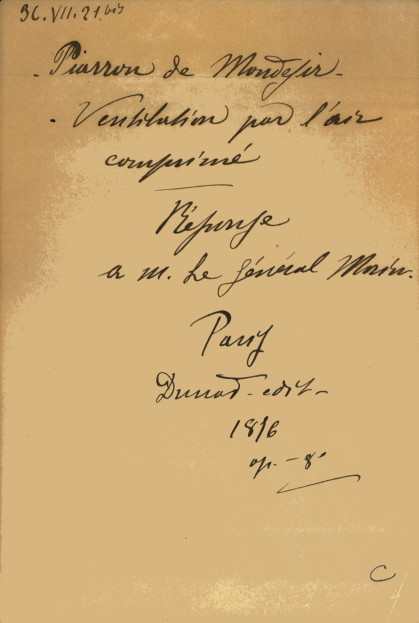 3C.VII.21.bis
- Piarron de Mondesir -
- Ventilation par l'air
comprimé
Réponse
a M. Le Général Morin.
Paris
Dunod - edit -
1876
op. - 8°
C